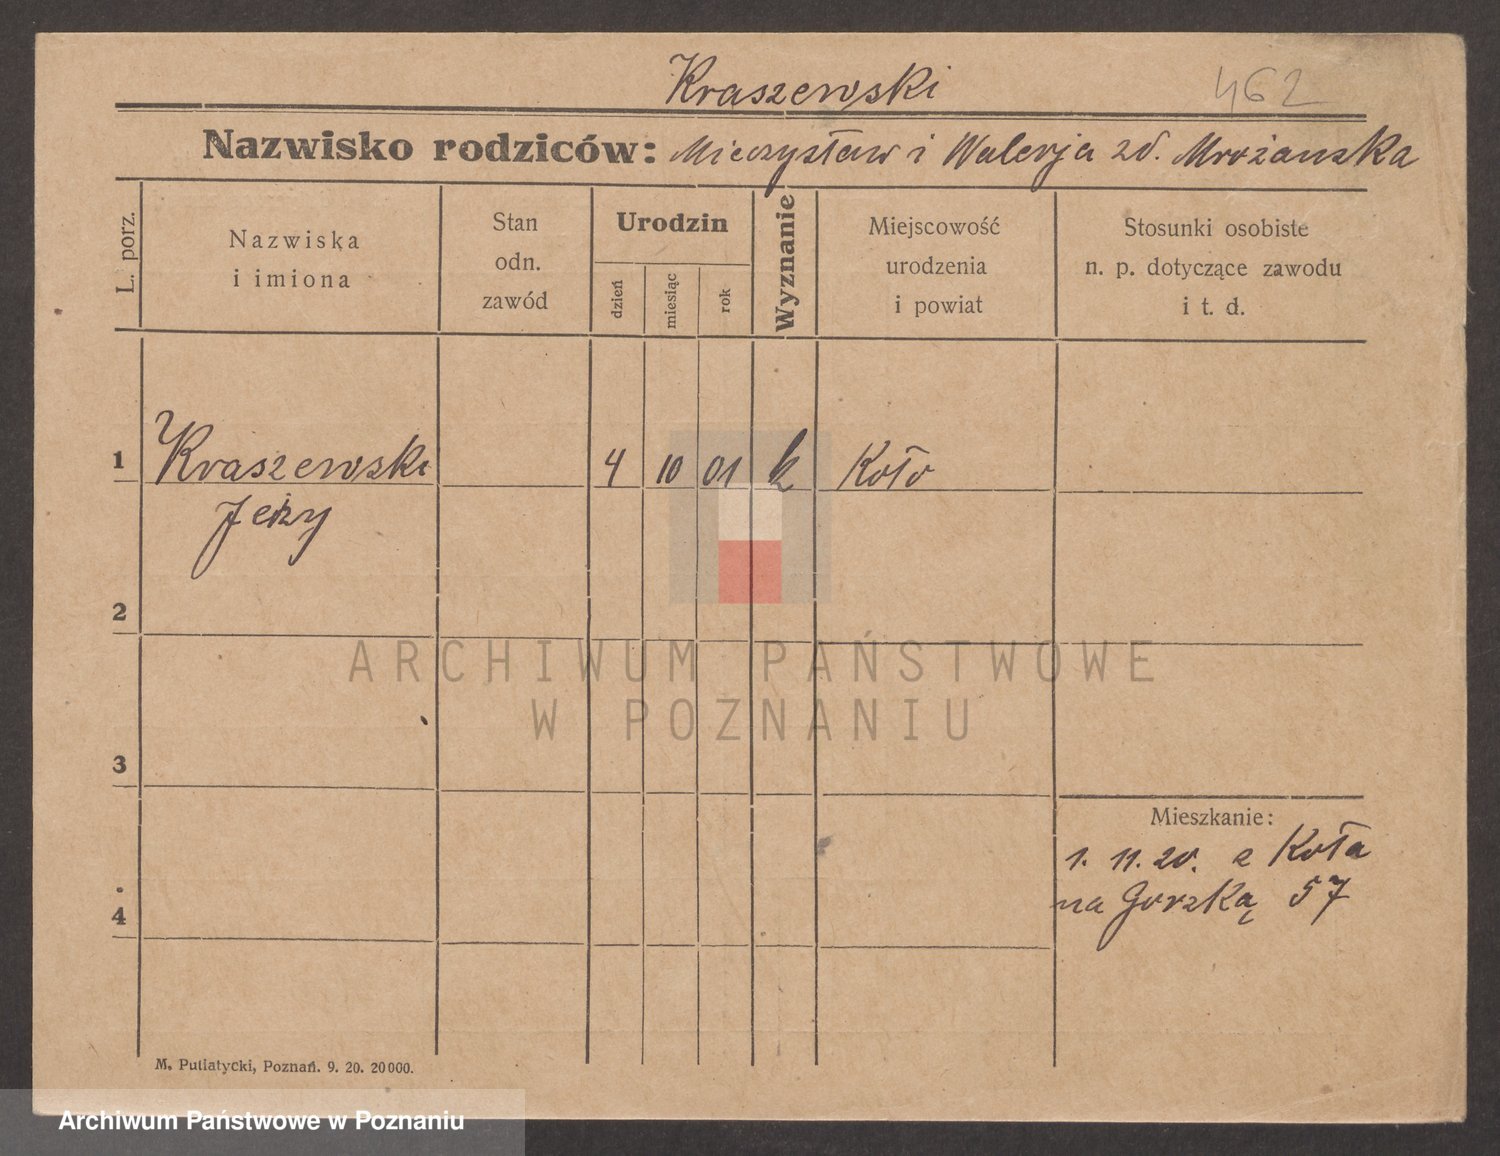 Kraszewski 462
Nazwisko rodziców: Mieczysław i Walerja zd. Mrożanska
L. porz.
Nazwiska
i imiona
Stan
odn.
zawód
Urodzin
dzień
miesiąc
rok
Wyznanie
Miejscowość
urodzenia
i powiat
Stosunki osobiste
n. p. dotyczące zawodu
i t. d.
1 Kraszewski 4 10 01 k Koło
Jerzy
2
ARCHIWUM PAŃSTWOWE
W POZNANIU
3
Mieszkanie:
1. 11. 20. z Koła
4 na Gorzką 57
M. Putiatycki, Poznań. 9. 20. 20000.
Archiwum Państwowe w Poznaniu